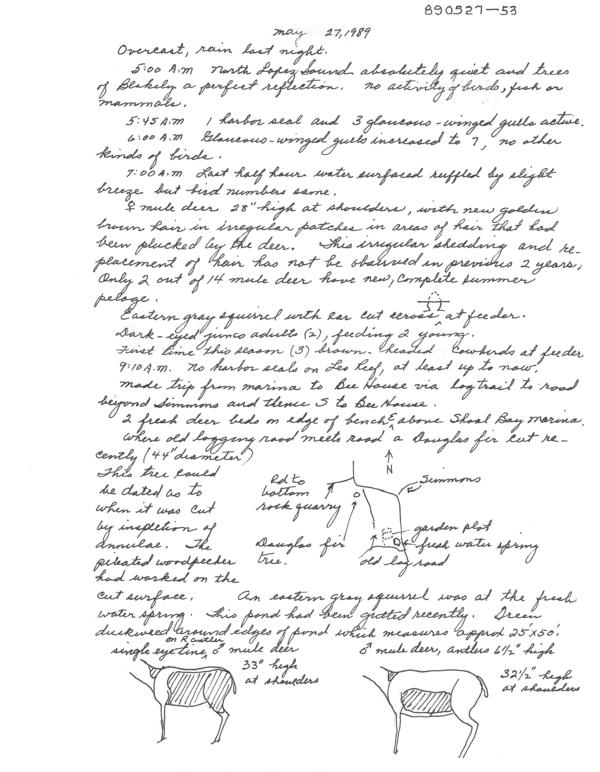 890527-53
May 27, 1989
Overcast, rain last night.
5:00 A.M North Lopez Sound absolutely quiet and trees
of Blakely a perfect reflection. No activity of birds, fish or
mammals.
5:45 A.M 1 harbor seal and 3 glaucous-winged gulls active.
6:00 A.M Glaucous-winged gulls increased to 7, no other
kinds of birds.
7:00 A.M Last half hour water surfaced ruffled by slight
breeze but bird numbers same.
♀ mule deer 28" high at shoulders, with new golden
brown hair in irregular patches in areas of hair that had
been plucked by the deer. This irregular shedding and re-
placement of hair has not be observed in previous 2 years,
Only 2 out of 14 mule deer have new, complete summer
pelage.
Eastern gray squirrel with ear cut across at feeder.
Dark-eyed junco adult (2), feeding 2 young.
First time this season (3) brown-headed Cowbirds at feeder
9:10 A.M. No harbor seals on Leo Reef, at least up to now.
made trip from marina to Bee House via log trail to road
beyond Simmons and thence S to Bee House.
2 fresh deer beds on edge of bench E. above Shoal Bay Marina.
Where old logging road meets road a Douglas fir cut re-
cently (44" diameter)
This tree could
be dated as to
when it was cut
by inspection of
annulae. The
pileated woodpecker
had worked on the
Rd to
bottom
rock quarry
N
Simmons
Douglas fir
tree.
garden plot
fresh water spring
old log road
cut surface. An eastern gray squirrel was at the fresh
water spring. This pond had been gutted recently. Green
duckweed around edges of pond which measures approx 25x50'.
single eye line, on R antler ♂ mule deer
33" high
at shoulders
♂ mule deer, antlers 6½" high
32½" high
at shoulders